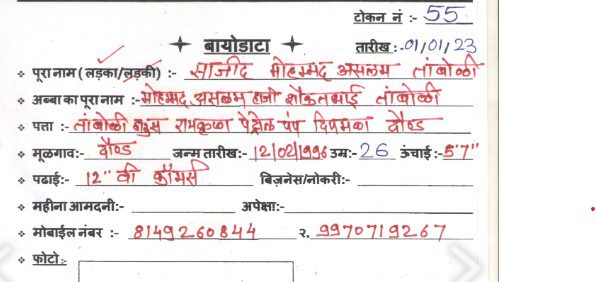 टोकन नं :- 55
बायोडाटा
तारीख :- 01/01/23
पूरा नाम (लड़का/लड़की) :- साजीद मोहम्मद असलम तांबोळी
अब्बा का पूरा नाम :- मोहम्मद असलम हाजी शौकतभाई तांबोळी
पत्ता :- तांबोळी हाउस रामकृष्ण पेट्रोल पंप दौण्ड
मूळगाव:- दौण्ड जन्म तारीख:- 12/02/1996 उम्र:- 26 ऊंचाई :- 5'7"
पढाई:- 12" वी कॉमर्स बिज़नेस/नोकरी:-
महीना आमदनी:- अपेक्षा:-
मोबाईल नंबर :- 8149260844 २. 9970719267
फोटो:-